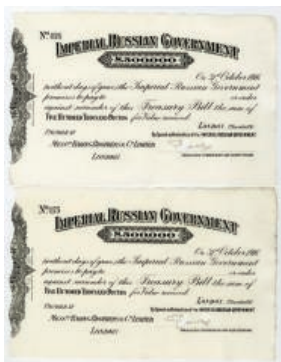 IMPERIAL RUSSIAN GOVERNMENT
£500000
On October 1916
without days of grace the Imperial Russian Government
promises to pay to or order
against surrender of this Treasury Bill the sum of
FIVE HUNDRED THOUSAND POUNDS for Value received.
LONDON
PAYABLE AT
MESSRS BARING BROTHERS & Co. LIMITED
LONDON
IMPERIAL RUSSIAN GOVERNMENT
£500000
On October 1916
without days of grace the Imperial Russian Government
promises to pay to or order
against surrender of this Treasury Bill the sum of
FIVE HUNDRED THOUSAND POUNDS for Value received.
LONDON
PAYABLE AT
MESSRS BARING BROTHERS & Co. LIMITED
LONDON